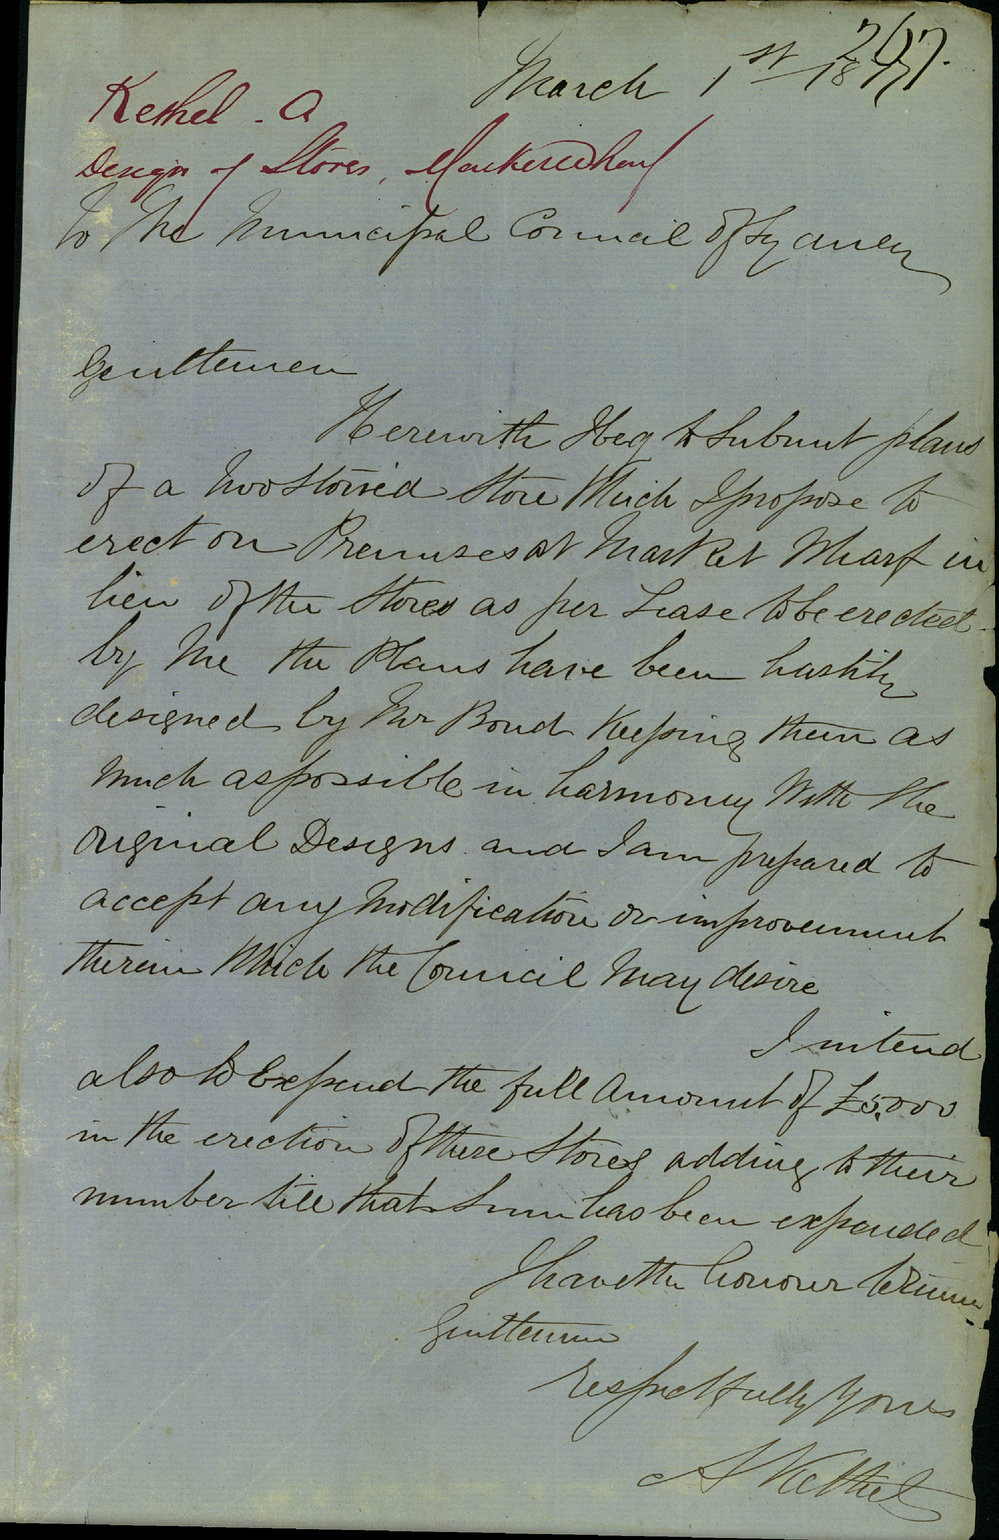 267.
March 1st 1877
Kethel . A
Design of Stores, Market Wharf
To The Municipal Council of Sydney
Gentlemen
Herewith I beg to Submit plans
of a two storied Store Which I propose to
erect on Premises at Market Wharf in
lieu of the Stores as per Lease to be erected
by Me the Plans have been hastily
designed by Mr Bond Keeping them as
Much as possible in harmony With the
Original Designs and I am prepared to
accept any Modification or improvement
therein Which the Council May desire
I intend
also to Expend the full Amount of £5.000
in the erection of these Stores adding to their
number till that Sum has been expended
I have the honour to
Gentlemen
Respectfully Yours
A Kethel